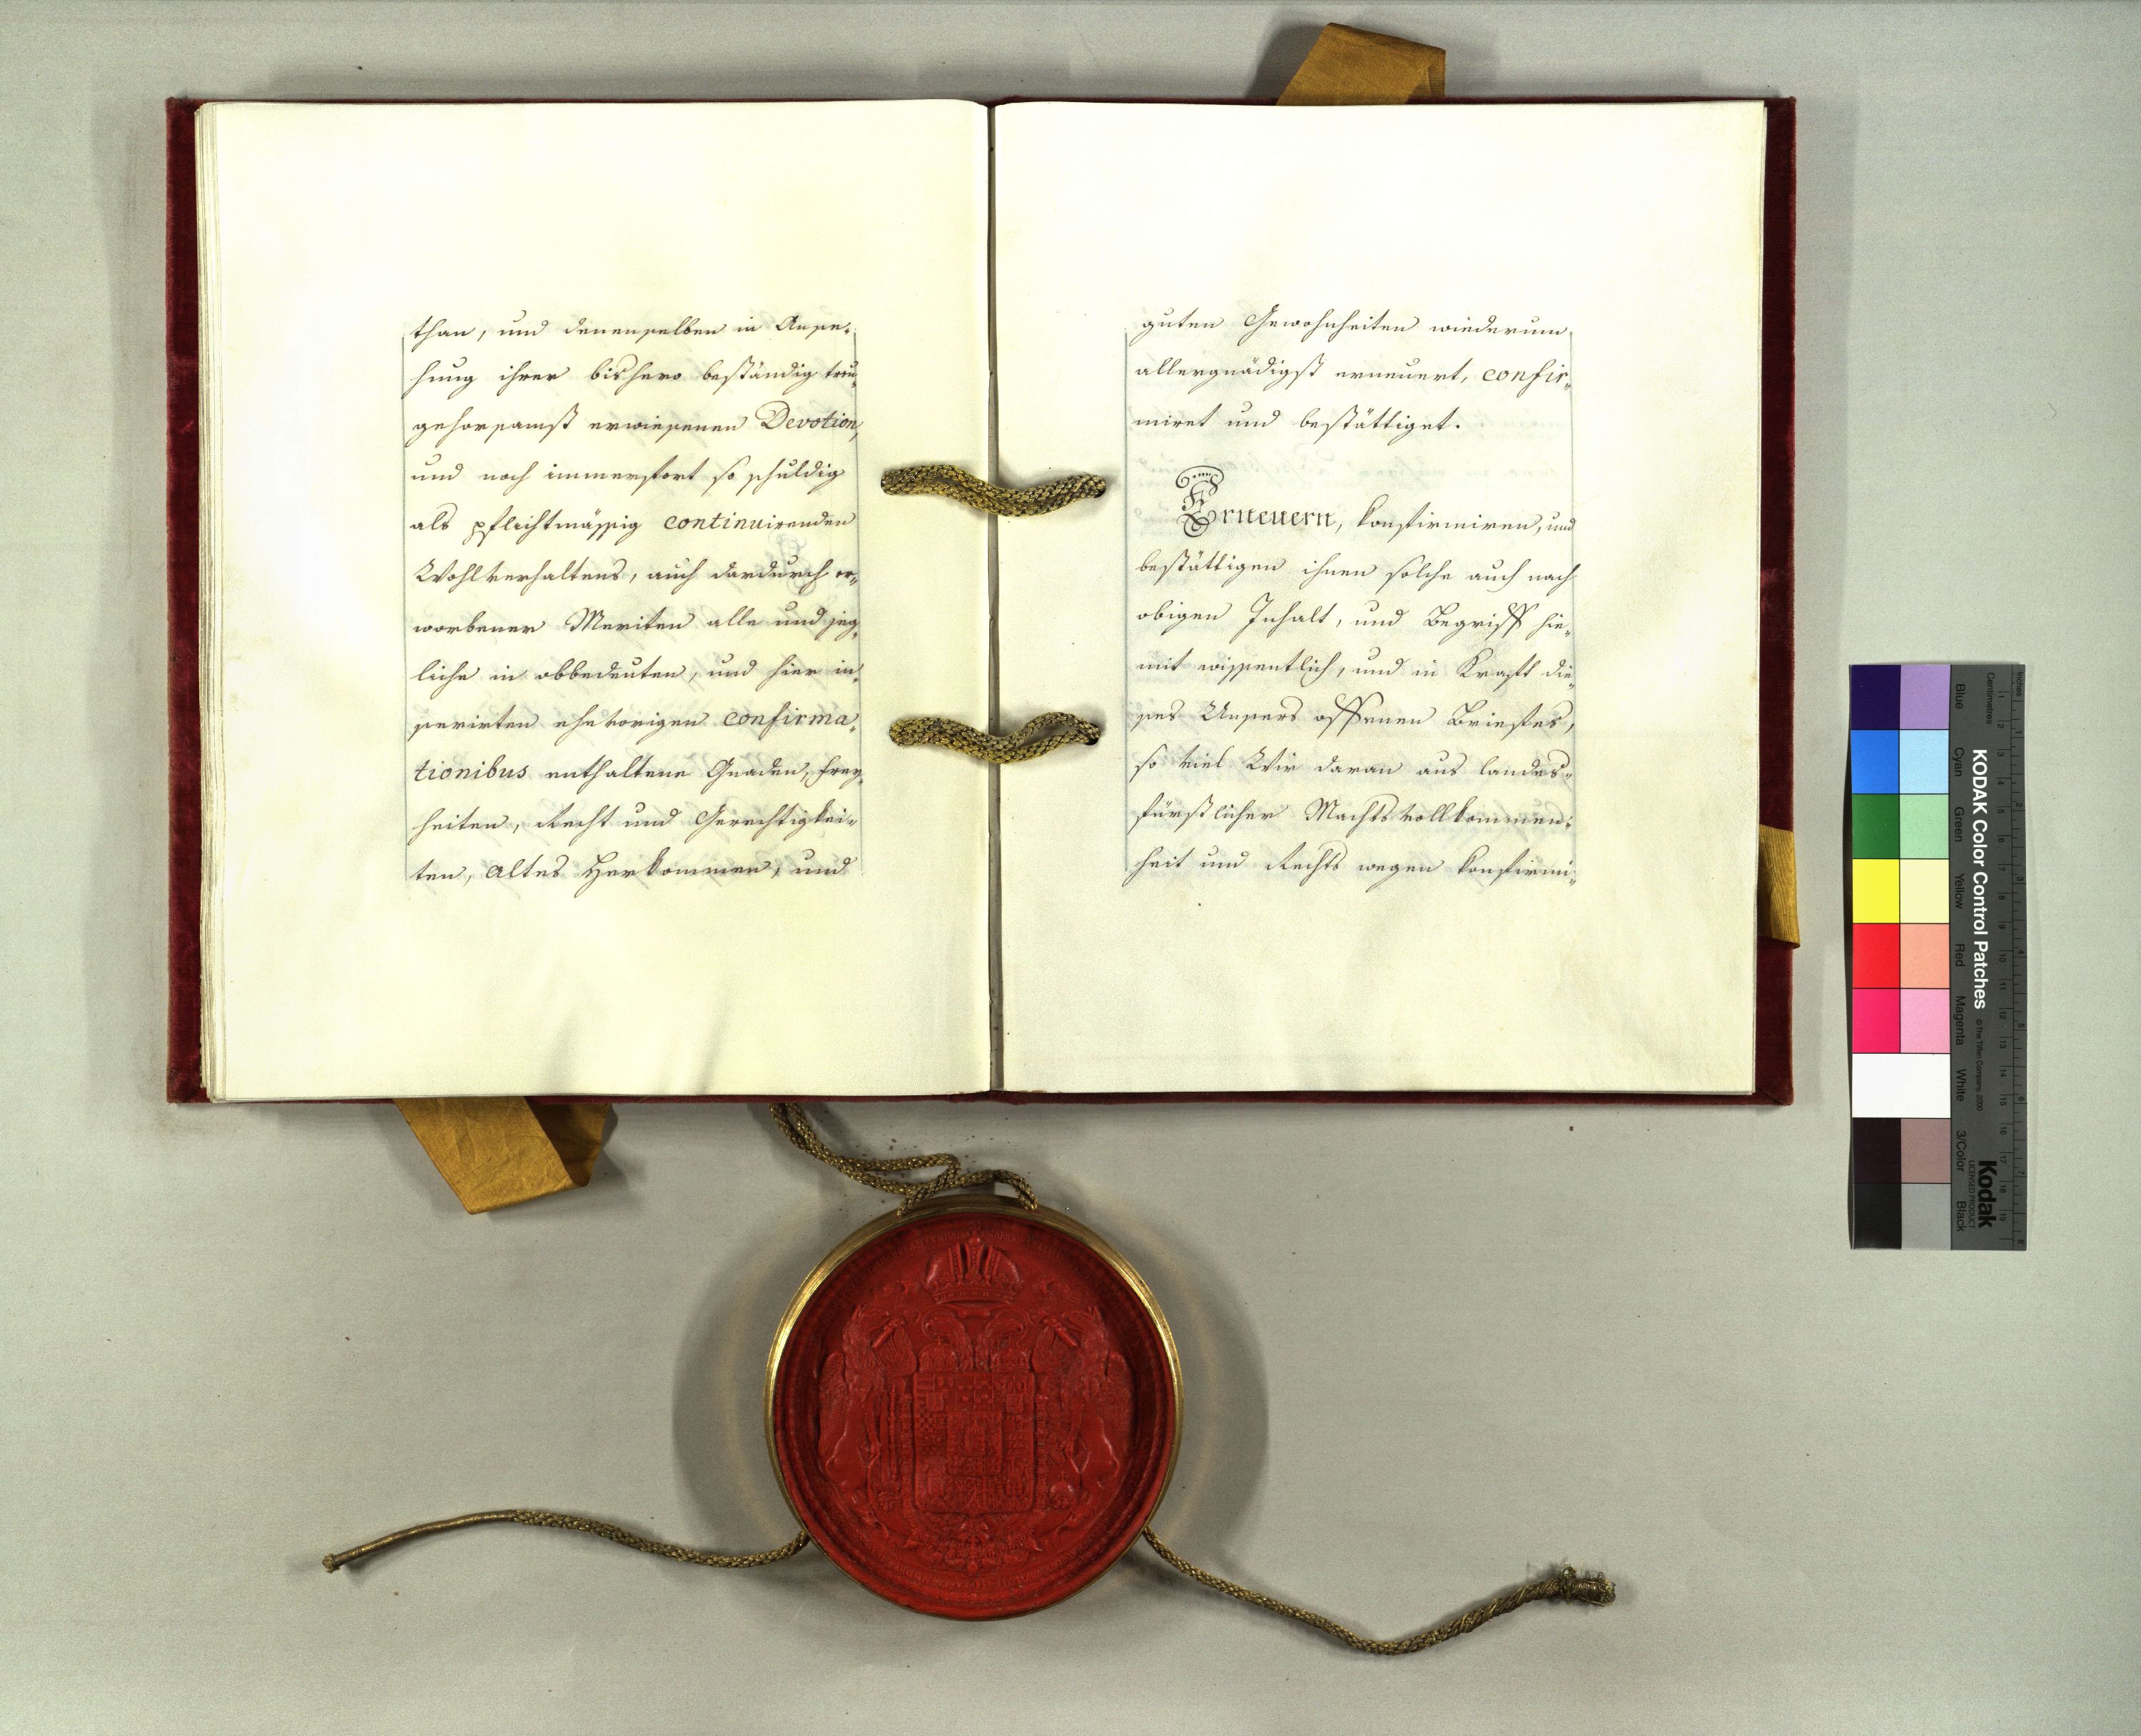 than, und denenselben in Anse-
hung ihrer bishero beständig treu-
gehorsamst erwiesenen Devotion,
und noch immerfort so schuldig
als pflichtmässig continuirenden
Wohlverhaltens, auch dardurch er-
worbener Meriten alle und jeg-
liche in obbedeuten, und hier in-
serirten ehevorigen confirma-
tionibus enthaltene Gnaden, Frey-
heiten, Recht und Gerechtigkei-
ten, altes Herkommen, und
guten Gewohnheiten wiederum
allergnädigst erneuert, confir-
miret und bestättiget.
Erneuern, konfirmiren, und
bestättigen ihnen solche auch nach
obigen Inhalt, und Begriff hie-
mit wissentlich, und in Kraft die-
ses Unsers offenen Briefes,
so viel Wir daran aus landes-
fürstlicher Machtsvollkommen-
heit und Rechts wegen konfirmi-
KODAK Color Control Patches
© The Tiffen Company, 2000
Kodak
LICENSED PRODUCT
Blue Cyan Green Yellow Red Magenta White 3/Color Black
Inches
Centimetres